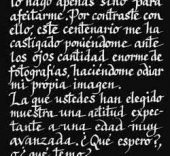 lo hago apenas sino para
afeitarme. Por contraste con
ello, este centenario me ha
castigado poniéndome ante
los ojos cantidad enorme de
fotografías, haciéndome odiar
mi propia imagen.
La que ustedes han elegido
muestra una actitud expec-
tante a una edad muy
avanzada. ¿Qué espero?,
o ¿qué temo?